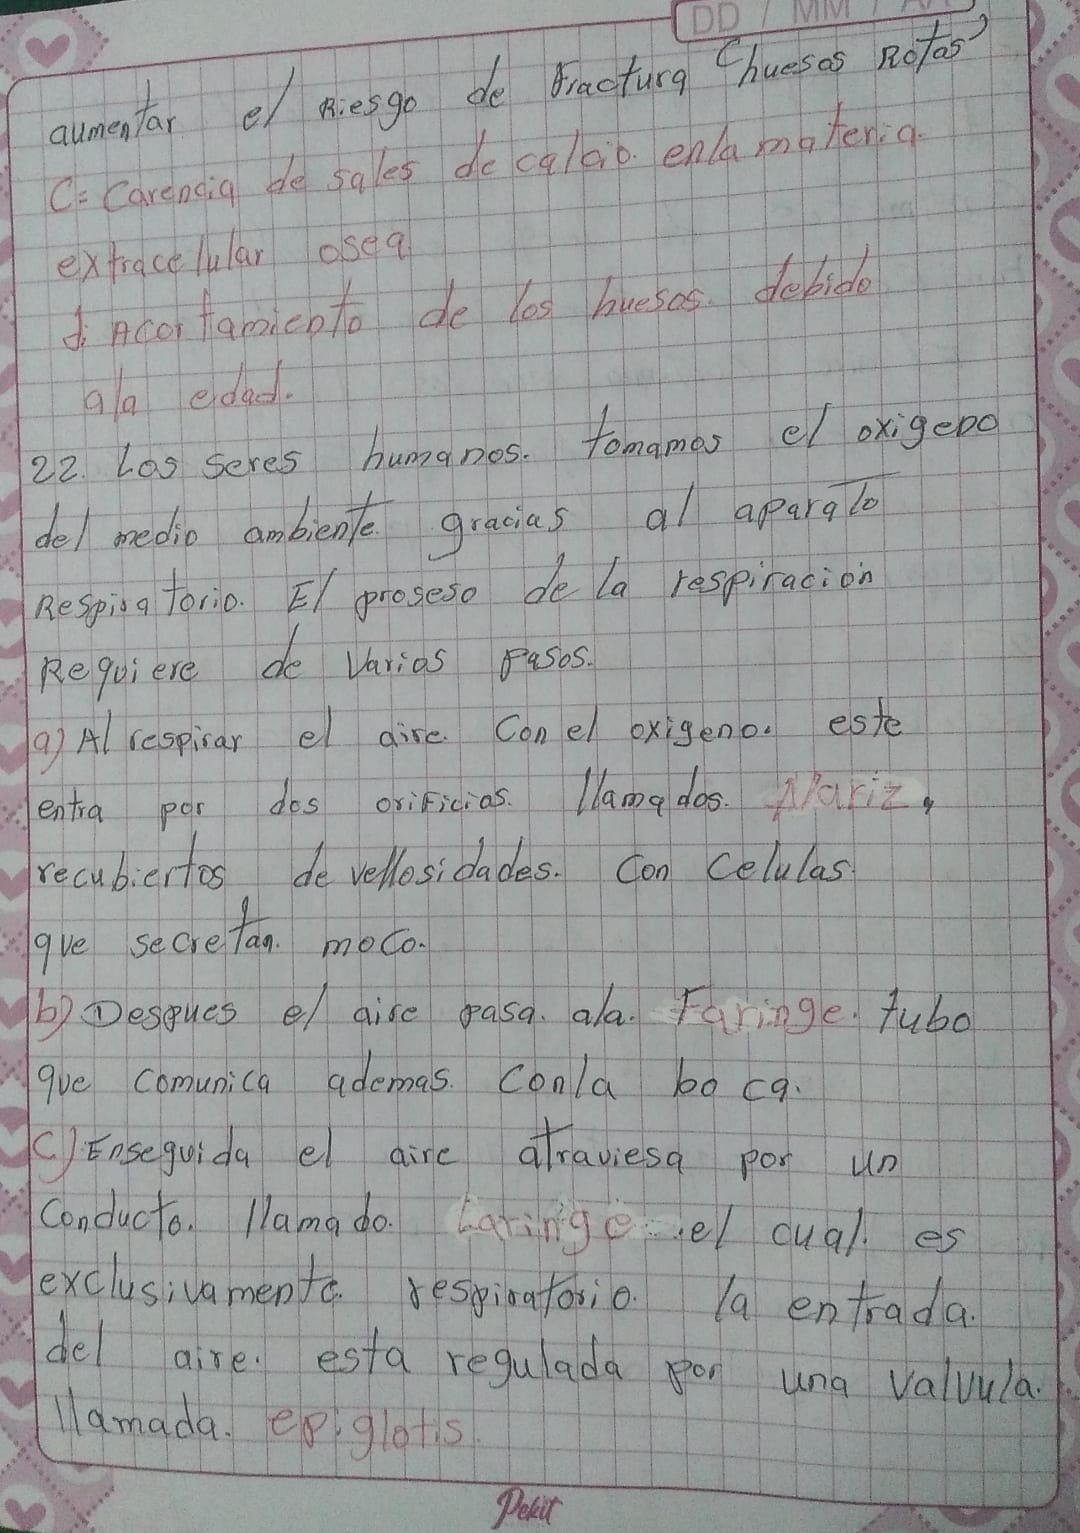 DD / MM / AA
aumentar el Riesgo de Fractura (huesos Rotos)
C= Carencia de sales de calcio. en la materia.
extracelular osea
d: Acortamiento de los huesos. debido
a la edad.
22. Los seres humanos. tomamos el oxigeno
del medio ambiente. gracias al aparato
Respiratorio. El proseso de la respiración
Requiere de Varios pasos.
a) Al respirar el aire. Con el oxigeno. este
entra por dos orificios. llamados. Nariz,
recubiertos de vellosidades. Con Celulas.
que secretan. moco.
b) Despues el aire pasa. ala. Faringe. tubo
que comunica ademas. Conla boca.
C) Enseguida el aire atraviesa por un
Conducto. llamado. Laringe el cual. es
exclusivamente. respiratorio. la entrada.
del aire. esta regulada por una valvula.
llamada. epiglotis.
Pekit